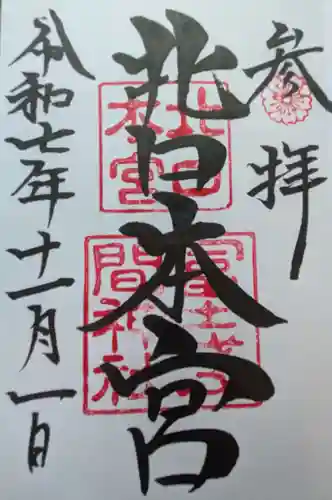 参拝
北口本宮
北口本宮
冨士浅間神社
令和七年十一月一日